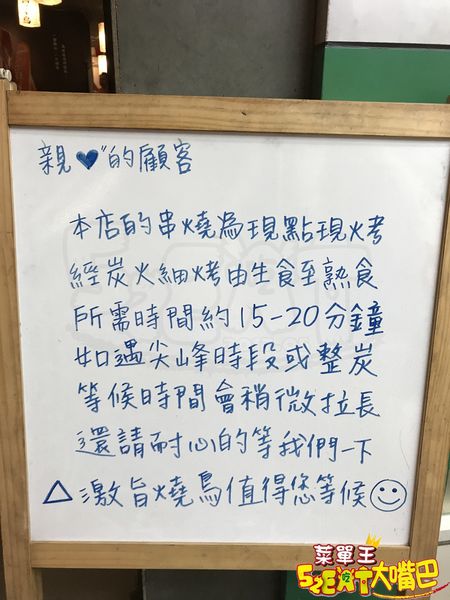 親♥"的顧客
本店的串燒為現點現烤
經炭火細烤由生食至熟食
所需時間約15-20分鐘
如遇尖峰時段或整炭
等候時間會稍微拉長
還請耐心的等我們一下
△激旨燒鳥值得您等候☺
菜單王
52EAT大嘴巴